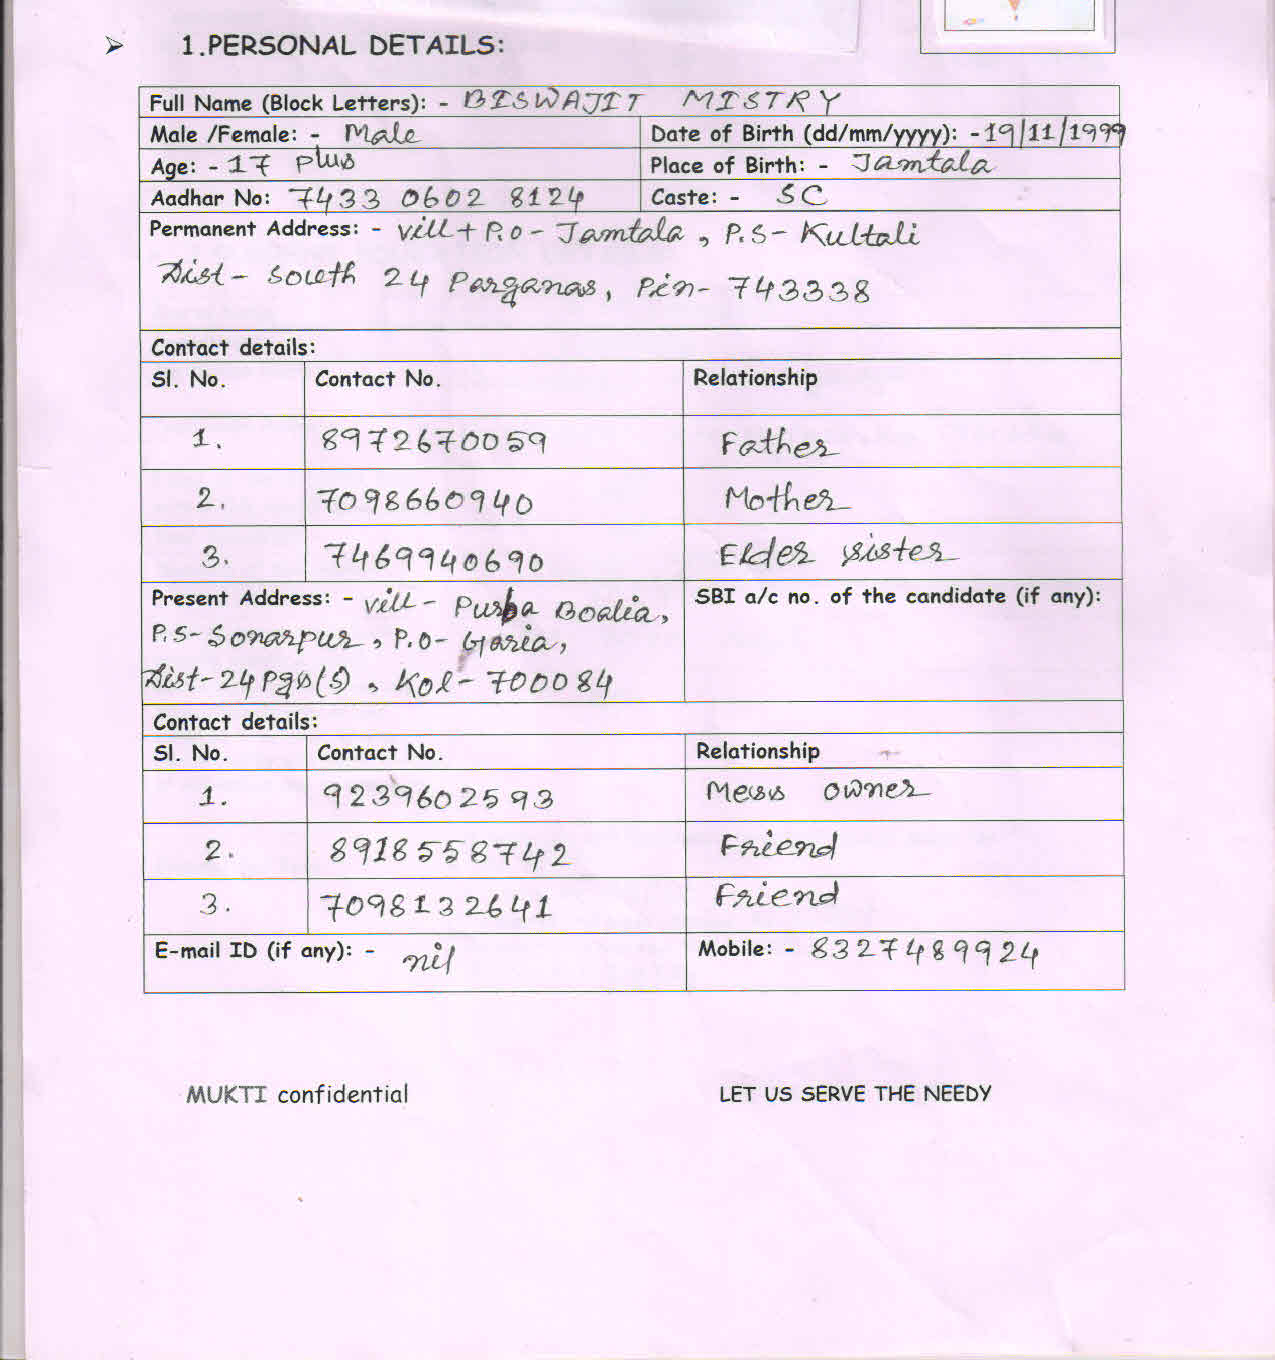 ➤ 1.PERSONAL DETAILS:
Full Name (Block Letters): - BISWAJIT MISTRY
Male /Female: - Male Date of Birth (dd/mm/yyyy): - 19/11/1999
Age: - 17 plus Place of Birth: - Jamtala
Aadhar No: 7433 0602 8124 Caste: - SC
Permanent Address: - vill + P.o - Jamtala, P.S - Kultali
Dist - South 24 Parganas, Pin - 743338
Contact details:
Sl. No. Contact No. Relationship
1. 8972670059 Father
2. 7098660940 Mother
3. 7469940690 Elder sister
Present Address: - vill - Purba Boalia, SBI a/c no. of the candidate (if any):
P.S - Sonarpur, P.O - Garia,
Dist - 24 Pgs(S), Kol - 700084
Contact details:
Sl. No. Contact No. Relationship
1. 9239602593 Mess owner
2. 8918558742 Friend
3. 7098132641 Friend
E-mail ID (if any): - nil Mobile: - 8327489924
MUKTI confidential LET US SERVE THE NEEDY